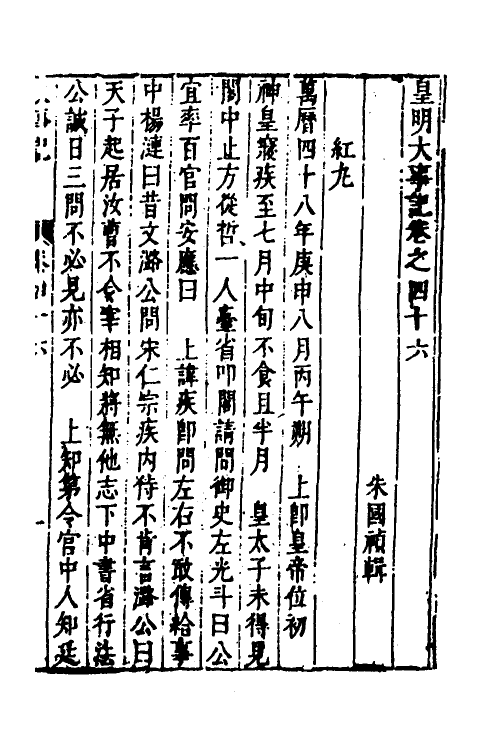 皇明大事記卷之四十六
朱國禎輯
紅丸
萬曆四十八年庚申八月丙午朔 上卽皇帝位初
神皇寢疾至七月中旬不食且半月 皇太子未得見
閣中止方從哲一人臺省叩閣請問御史左光斗曰公
宜率百官問安應曰 上諱疾卽問左右不敢傳給事
中楊漣曰昔文潞公問宋仁宗疾内侍不肯言潞公曰
天子起居汝曹不令宰相知將無他志下中書省行法
公誠日三問不必見亦不必 上知第令宫中人知廷